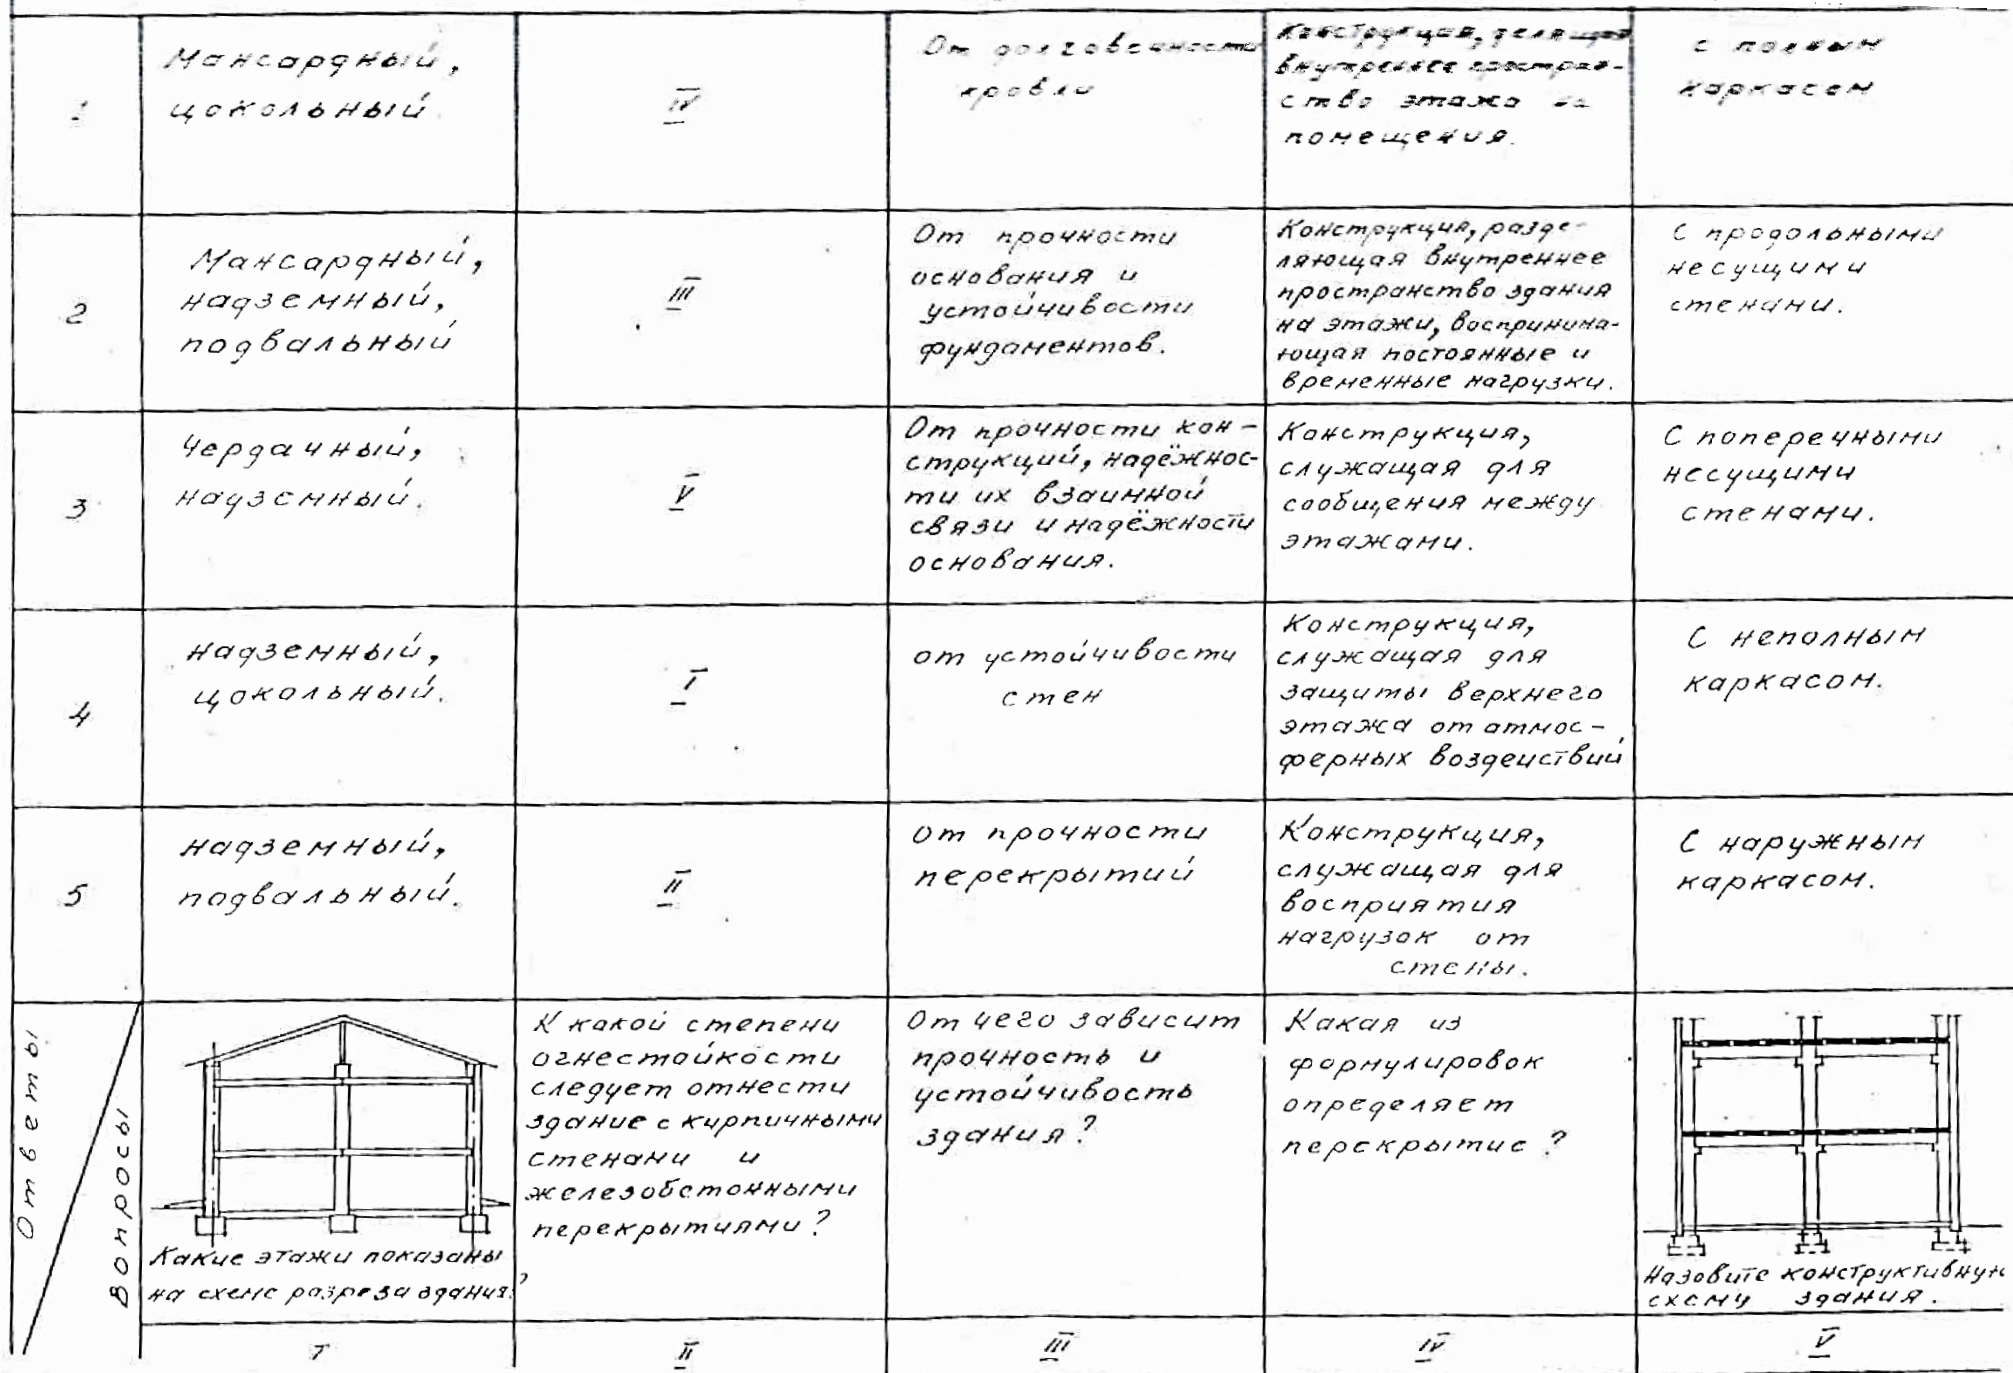 1
Мансардный,
цокольный.
IV
От долговечности
кровли
Конструкция, делящая
внутреннее простран-
ство этажа на
помещения.
с полным
каркасом
2
Мансардный,
надземный,
подвальный
III
От прочности
основания и
устойчивости
фундаментов.
Конструкция, разде-
ляющая внутреннее
пространство здания
на этажи, воспринима-
ющая постоянные и
временные нагрузки.
С продольными
несущими
стенами.
3
Чердачный,
надземный.
V
От прочности кон-
струкций, надёжнос-
ти их взаимной
связи и надёжности
основания.
Конструкция,
служащая для
сообщения между
этажами.
С поперечными
несущими
стенами.
4
надземный,
цокольный.
I
от устойчивости
стен
Конструкция,
служащая для
защиты верхнего
этажа от атмос-
ферных воздействий
С неполным
каркасом.
5
надземный,
подвальный.
II
от прочности
перекрытий
Конструкция,
служащая для
восприятия
нагрузок от
стены.
С наружным
каркасом.
Ответы
Вопросы
Какие этажи показаны
на схеме разреза здания?
К какой степени
огнестойкости
следует отнести
здание с кирпичными
стенами и
железобетонными
перекрытиями?
От чего зависит
прочность и
устойчивость
здания?
Какая из
формулировок
определяет
перекрытие?
Назовите конструктивную
схему здания.
I
II
III
IV
V